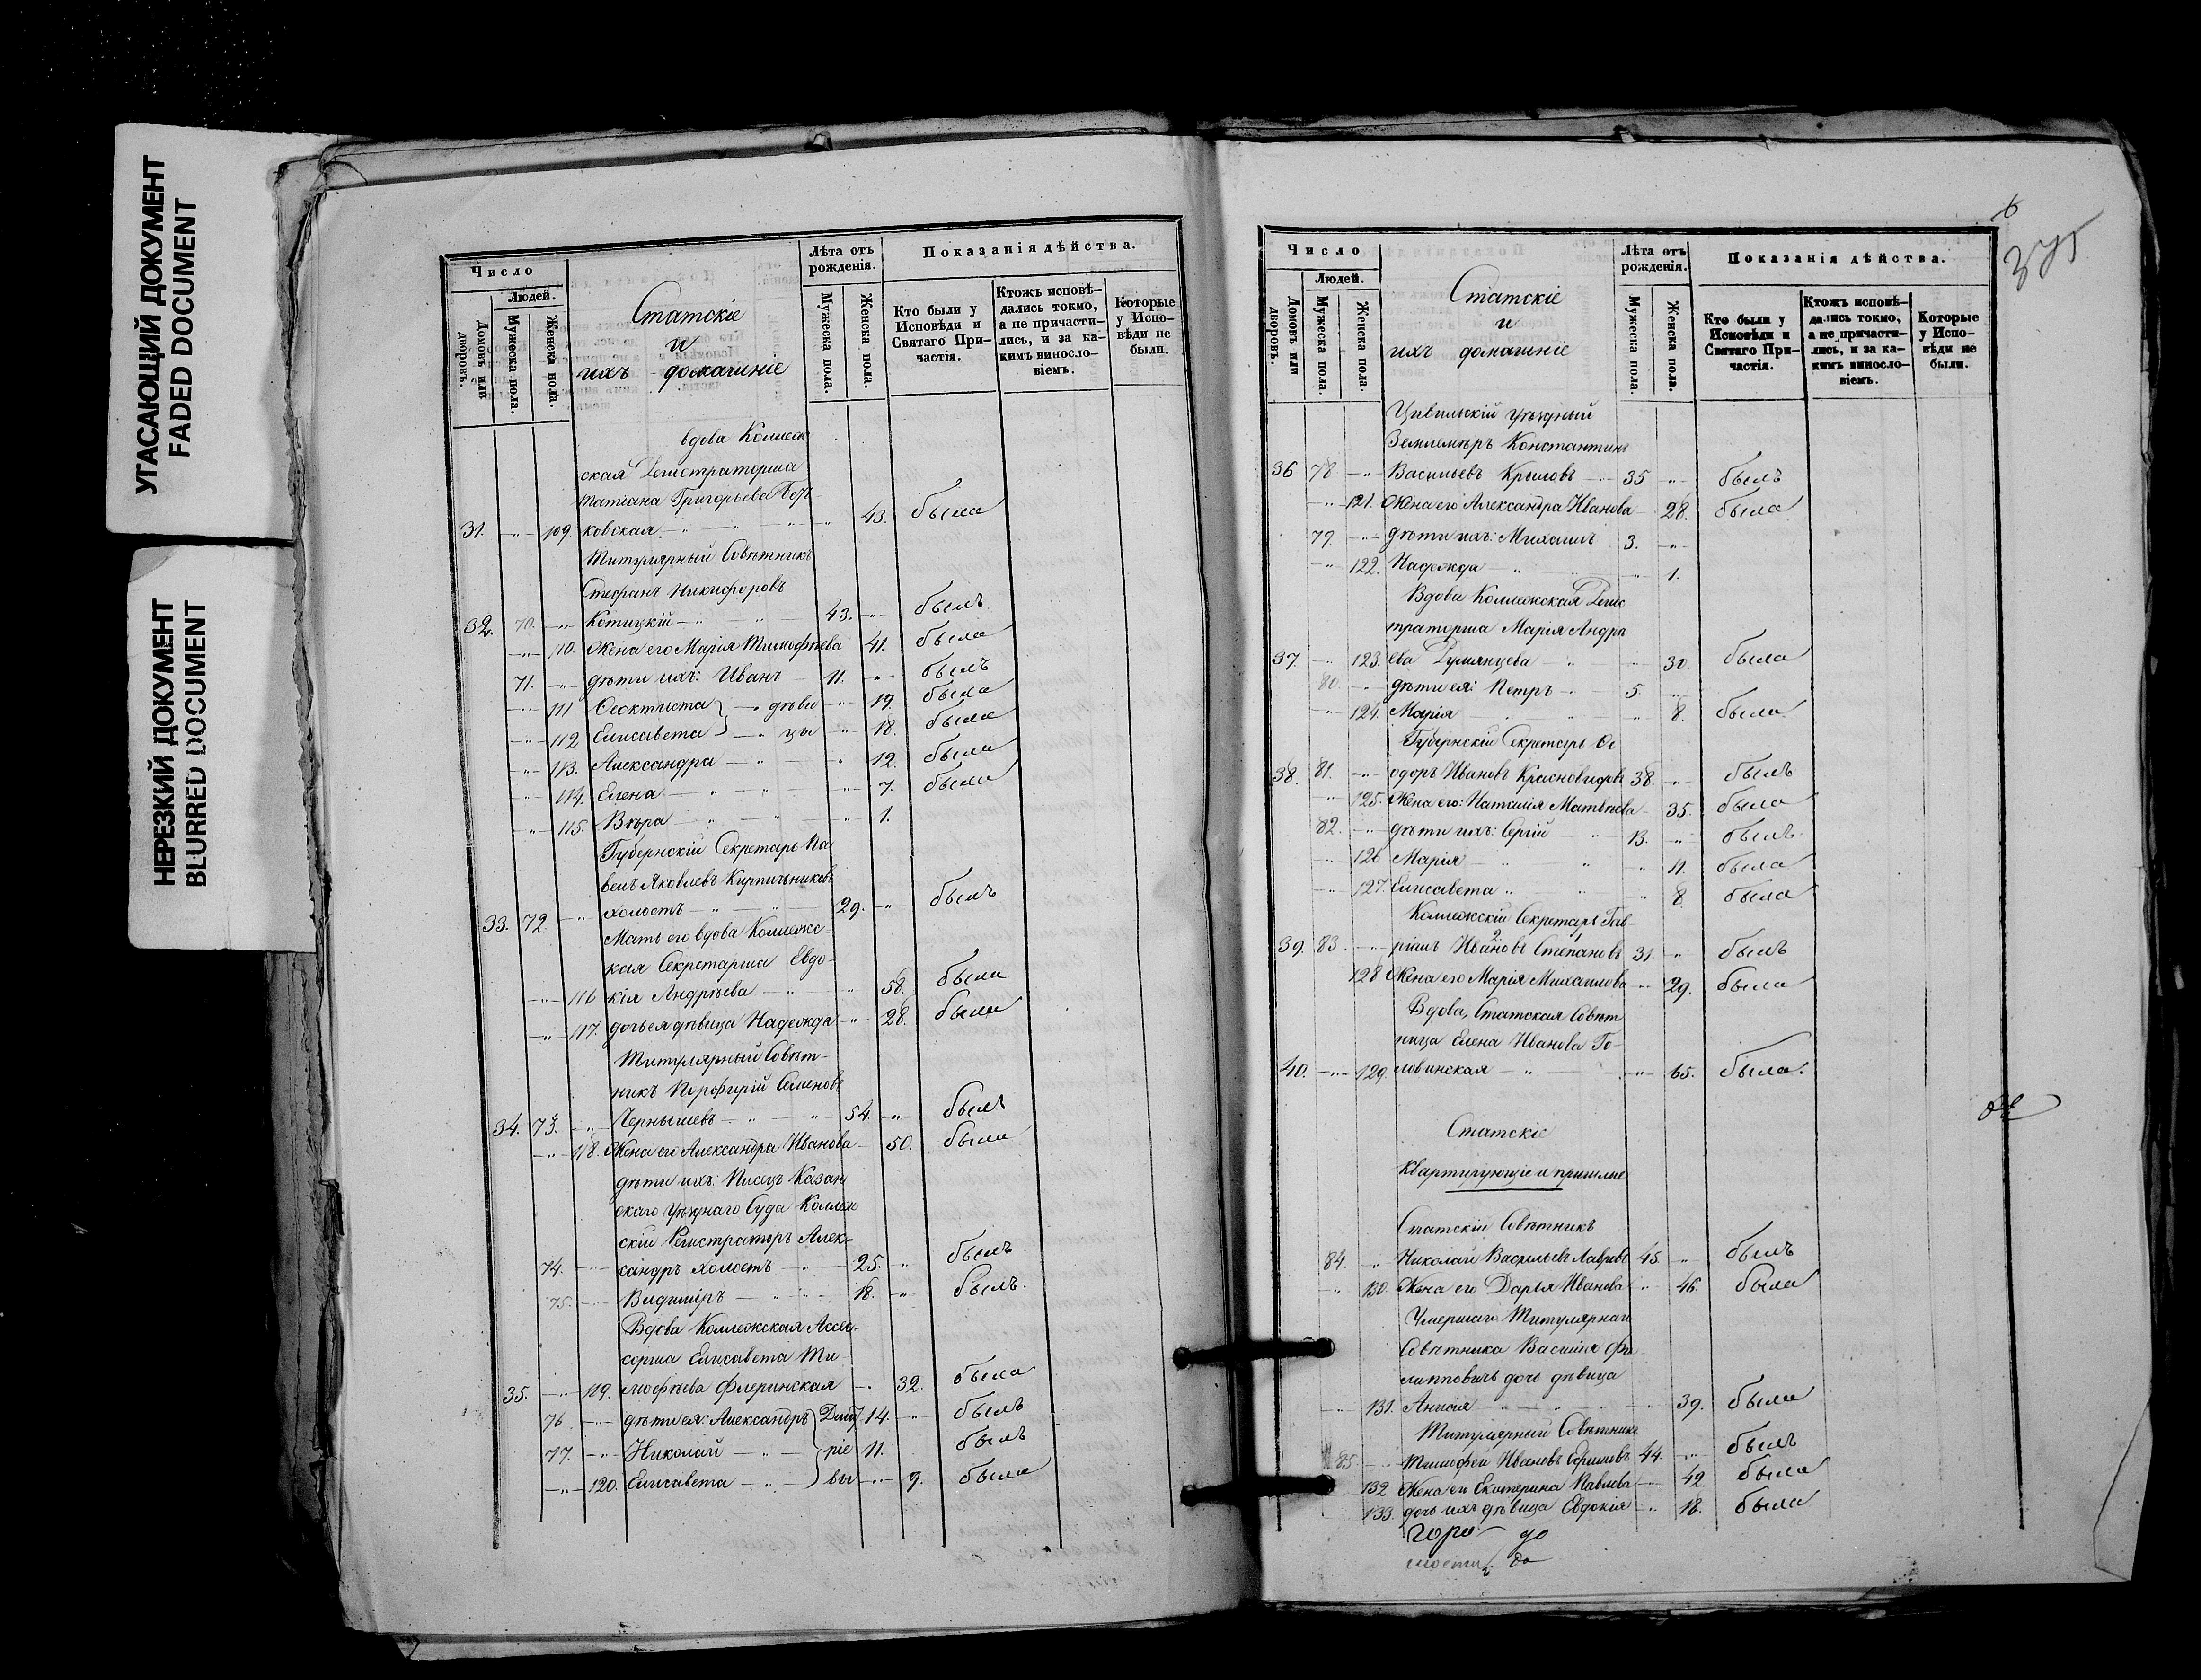 УГАСАЮЩИЙ ДОКУМЕНТ
FADED DOCUMENT
НЕРЕЗКИЙ ДОКУМЕНТ
BLURRED DOCUMENT
Число
Людей.
Домовъ или дворовъ.
Мужеска пола.
Женска пола.
Статскіе
и
ихъ домашніе
Лѣта отъ рожденія.
Мужеска пола.
Женска пола.
Показанія дѣйства.
Кто были у Исповѣди и Святаго Причастія.
Ктожъ исповѣдались токмо, а не причастились, и за какимъ винословіемъ.
Которые у Исповѣди не были.
вдова Коллеж
ская Регистраторша
Татіана Григорьева
31. -"- 109. ковская -"- " 43. была
Титулярный Совѣтникъ
Стефанъ Никифоровъ
32. 70. -"- Котицкій -"- 43. -"- былъ
-"- 110. Жена его Марія Тимофѣева 41. была
71. -"- дѣти ихъ: Иванъ - 11. -"- былъ
-"- 111 Феоктиста } -"- дѣви -"- 19. была
-"- 112 Елисавета } -"- цы -"- 18. была
-"- 113. Александра -"- " 12. была
-"- 114. Елена -"- -"- 7. была
-"- 115. Вѣра -"- " 1.
Губернскій Секретарь Па
велъ Яковлевъ Кирпичниковъ
33. 72. -"- холостъ -"- 29. -"- былъ
Мать его вдова Коллежс-
кая Секретарша Евдо-
-"- 116 кія Андрѣева -"- " 58. была
-"- 117. дочь ея дѣвица Надежда -"- 28. была
Титулярный Совѣт-
никъ Порфирій Семеновъ
34. 73. -"- Чернышевъ -"- 54. -"- былъ
-"- 118. Жена его Александра Иванова - 50. была
дѣти ихъ: Писецъ Казан
скаго Уѣзднаго Суда Коллеж
скій Регистраторъ Алек-
74. -"- сандръ холостъ -"- 25. " былъ
75. -"- Владиміръ -"- 18. -"- былъ.
Вдова Коллежская Ассес-
сорша Елисавета Ти-
35. -"- 119. мофѣева Флеринская -"- 32. была
76 -"- дѣти ея: Александръ } Дмит 14. -"- былъ
77. -"- Николай -"- } ріе 11. былъ
-"- 120. Елисавета -"- } вы -"- 9. была
375
Число
Людей.
Домовъ или дворовъ.
Мужеска пола.
Женска пола.
Статскіе
и
ихъ домашніе
Лѣта отъ рожденія.
Мужеска пола.
Женска пола.
Показанія дѣйства.
Кто были у Исповѣди и Святаго Причастія.
Ктожъ исповѣдались токмо, а не причастились, и за какимъ винословіемъ.
Которые у Исповѣди не были.
Цивильскій Уѣздный
Землемѣръ Константинъ
36 78 -"- Васильевъ Крыловъ - 35 -"- былъ
-"- 121. Жена его Александра Иванова - 28. была
79. -"- дѣти ихъ: Михаилъ 3. -"-
-"- 122. Надежда -"- -"- 1.
Вдова Коллежская Регис
траторша Марія Андре
37. -"- 123. ева Румянцева -"- -"- 30. была
80. -"- дѣти ея: Петръ -"- 5. -"-
-"- 124. Марія -"- " 8. была
Губернскій Секретарь Ѳе
38. 81. -"- одоръ Ивановъ Красновидовъ 38. -"- былъ
-"- 125. Жена его: Наталія Матвѣева - 35. была
82. -"- дѣти ихъ: Сергій -"- 13. -"- былъ
-"- 126 Марія -"- " 11. была
-"- 127. Елисавета -"- " 8. была
Коллежскій Секретарь Гав-
39. 83. -"- ріилъ Ивановъ Степановъ 31. " былъ
128 Жена его Марія Михаилова -"- 29. была
Вдова, Статская Совѣт
ница Елена Иванова Го-
40. -"- 129. ловинская -"- -"- 65. была.
Статскіе
Квартирующіе и пришлые
Статскій Совѣтникъ
84. " Николай Васильевъ 45. " былъ
" 130. Жена его Дарья Иванова " 46. была
Умершаго Титулярнаго
Совѣтника Василія Фи
липповича дочь дѣвица
-"- 131. Анисія -"- " 39. была
Титулярный Совѣтникъ
85. -"- Тимофей Ивановъ 44. -"- былъ
132 Жена его Екатерина Павлова -"- 42. была
133. дочь ихъ дѣвица Евдокія -"- 18. была